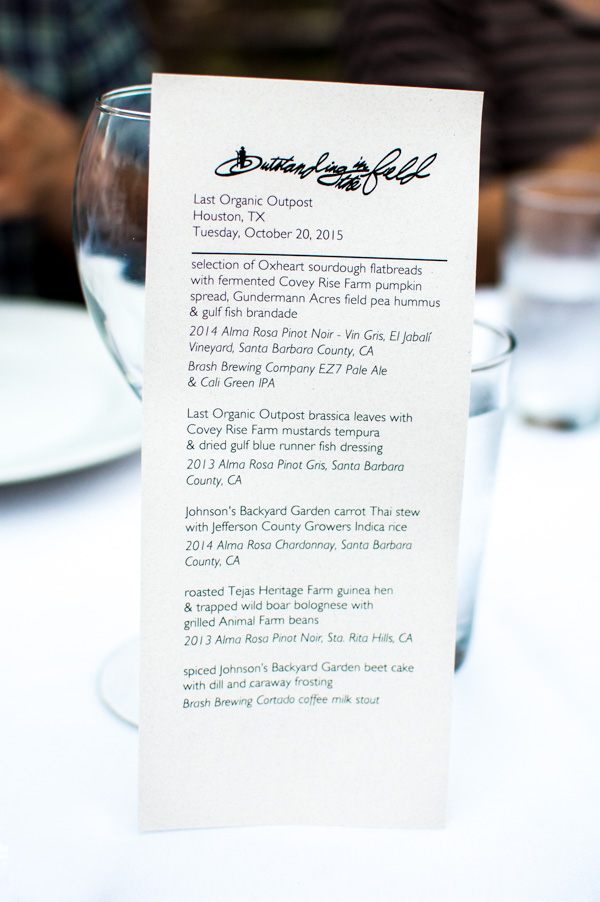 Outstanding in the field
Last Organic Outpost
Houston, TX
Tuesday, October 20, 2015
selection of Oxheart sourdough flatbreads
with fermented Covey Rise Farm pumpkin
spread, Gundermann Acres field pea hummus
& gulf fish brandade
2014 Alma Rosa Pinot Noir - Vin Gris, El Jabalí
Vineyard, Santa Barbara County, CA
Brash Brewing Company EZ7 Pale Ale
& Cali Green IPA
Last Organic Outpost brassica leaves with
Covey Rise Farm mustards tempura
& dried gulf blue runner fish dressing
2013 Alma Rosa Pinot Gris, Santa Barbara
County, CA
Johnson's Backyard Garden carrot Thai stew
with Jefferson County Growers Indica rice
2014 Alma Rosa Chardonnay, Santa Barbara
County, CA
roasted Tejas Heritage Farm guinea hen
& trapped wild boar bolognese with
grilled Animal Farm beans
2013 Alma Rosa Pinot Noir, Sta. Rita Hills, CA
spiced Johnson's Backyard Garden beet cake
with dill and caraway frosting
Brash Brewing Cortado coffee milk stout